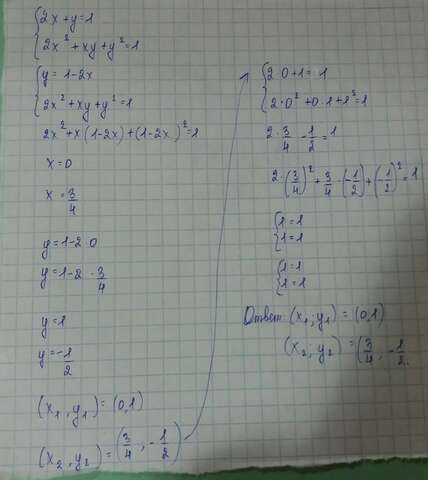 {2x+y=1
{2x²+xy+y²=1
{y=1-2x
{2x²+xy+y²=1
2x²+x(1-2x)+(1-2x)²=1
x=0
x=3/4
y=1-2·0
y=1-2·3/4
y=1
y=-1/2
(x₁,y₁)=(0,1)
(x₂,y₂)=(3/4,-1/2)
{2·0+1=1
{2·0²+0·1+1²=1
2·3/4-1/2=1
2·(3/4)²+3/4·(-1/2)+(-1/2)²=1
{1=1
{1=1
{1=1
{1=1
Ответ: (x₁,y₁)=(0,1)
(x₂,y₂)=(3/4,-1/2